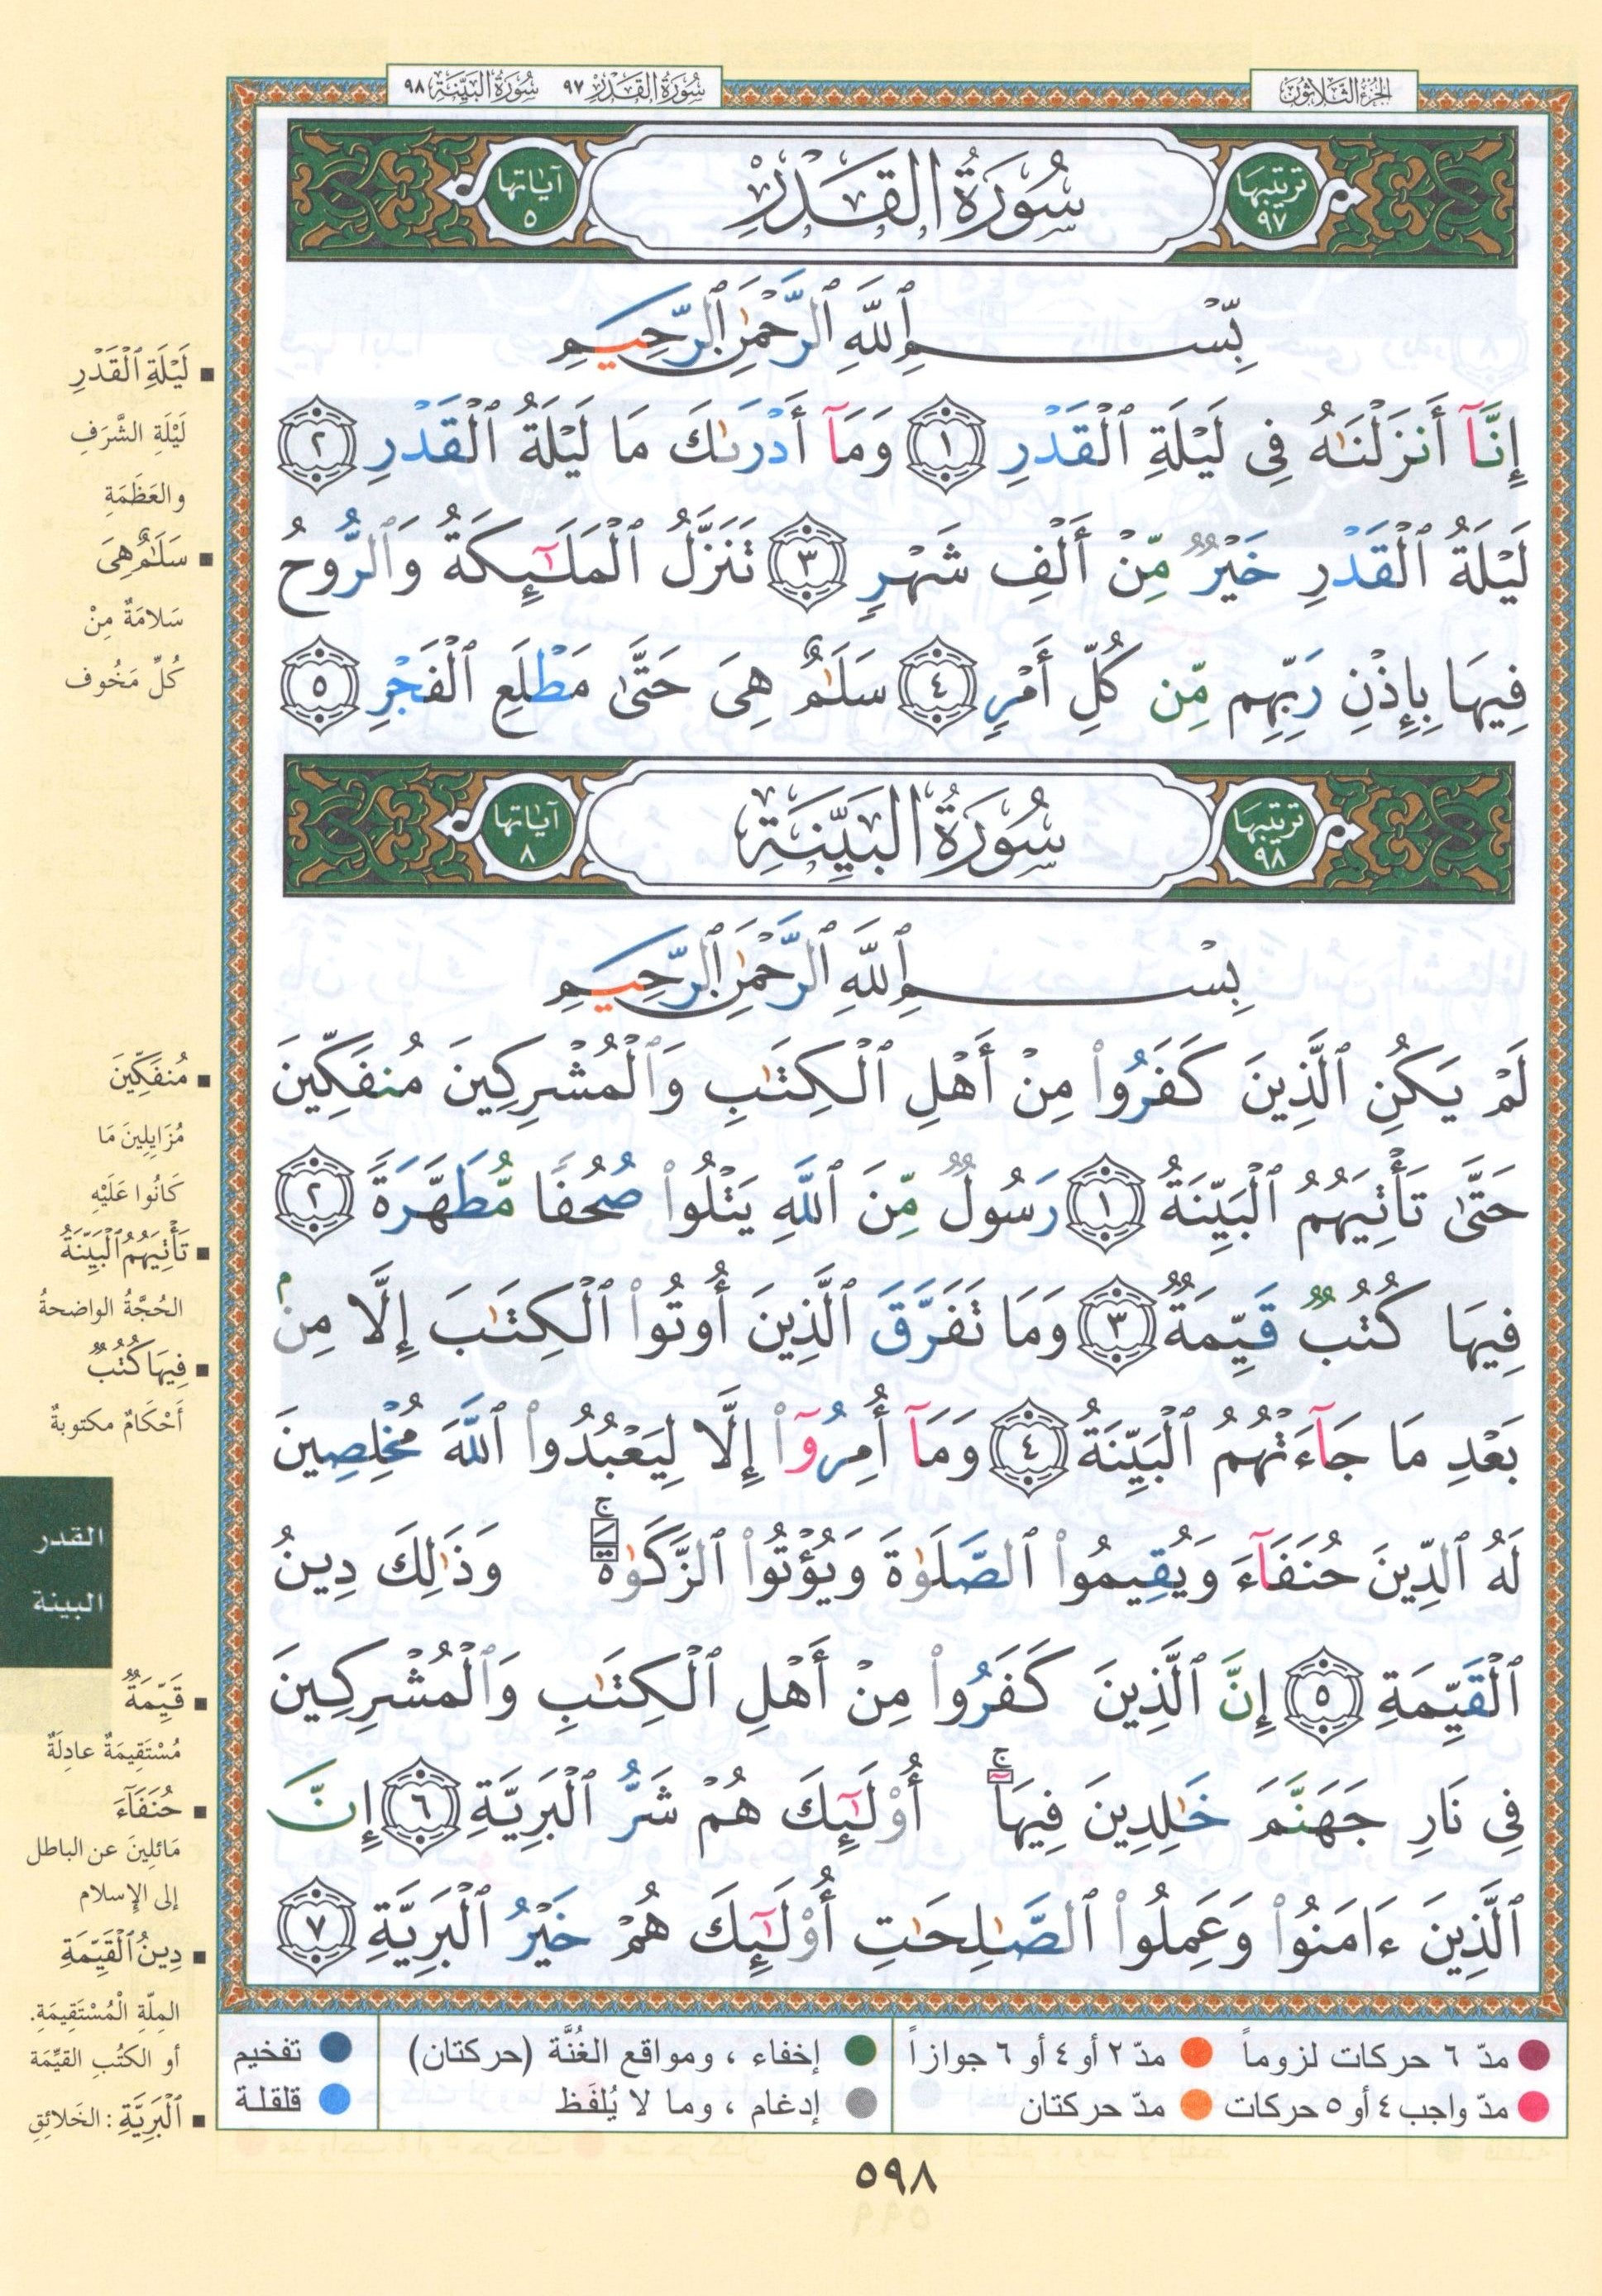 الجزء الثلاثون
سورة القدر ٩٧ سورة البينة ٩٨
ترتيبها ٩٧
سُورَةُ القَدْرِ
آياتها ٥
بِّسْمِ ٱللَّهِ ٱلرَّحْمَٰنِ ٱلرَّحِيمِ
إِنَّآ أَنزَلْنَٰهُ فِى لَيْلَةِ ٱلْقَدْرِ ١ وَمَآ أَدْرَىٰكَ مَا لَيْلَةُ ٱلْقَدْرِ ٢
لَيْلَةُ ٱلْقَدْرِ خَيْرٌ مِّنْ أَلْفِ شَهْرٍ ٣ تَنَزَّلُ ٱلْمَلَٰٓئِكَةُ وَٱلرُّوحُ
فِيهَا بِإِذْنِ رَبِّهِم مِّن كُلِّ أَمْرٍ ٤ سَلَٰمٌ هِىَ حَتَّىٰ مَطْلَعِ ٱلْفَجْرِ ٥
ترتيبها ٩٨
سُورَةُ البَيِّنَةِ
آياتها ٨
بِسْمِ ٱللَّهِ ٱلرَّحْمَٰنِ ٱلرَّحِيمِ
لَمْ يَكُنِ ٱلَّذِينَ كَفَرُوا۟ مِنْ أَهْلِ ٱلْكِتَٰبِ وَٱلْمُشْرِكِينَ مُنفَكِّينَ
حَتَّىٰ تَأْتِيَهُمُ ٱلْبَيِّنَةُ ١ رَسُولٌ مِّنَ ٱللَّهِ يَتْلُوا۟ صُحُفًا مُّطَهَّرَةً ٢
فِيهَا كُتُبٌ قَيِّمَةٌ ٣ وَمَا تَفَرَّقَ ٱلَّذِينَ أُوتُوا۟ ٱلْكِتَٰبَ إِلَّا مِنۢ
بَعْدِ مَا جَآءَتْهُمُ ٱلْبَيِّنَةُ ٤ وَمَآ أُمِرُوٓا۟ إِلَّا لِيَعْبُدُوا۟ ٱللَّهَ مُخْلِصِينَ
لَهُ ٱلدِّينَ حُنَفَآءَ وَيُقِيمُوا۟ ٱلصَّلَوٰةَ وَيُؤْتُوا۟ ٱلزَّكَوٰةَ ۚ وَذَٰلِكَ دِينُ
ٱلْقَيِّمَةِ ٥ إِنَّ ٱلَّذِينَ كَفَرُوا۟ مِنْ أَهْلِ ٱلْكِتَٰبِ وَٱلْمُشْرِكِينَ
فِى نَارِ جَهَنَّمَ خَٰلِدِينَ فِيهَآ ۚ أُو۟لَٰٓئِكَ هُمْ شَرُّ ٱلْبَرِيَّةِ ٦ إِنَّ
ٱلَّذِينَ ءَامَنُوا۟ وَعَمِلُوا۟ ٱلصَّٰلِحَٰتِ أُو۟لَٰٓئِكَ هُمْ خَيْرُ ٱلْبَرِيَّةِ ٧
لَيْلَةِ ٱلْقَدْرِ
لَيْلَةِ الشَّرَفِ
والعَظَمَةِ
سَلَٰمٌ هِىَ
سَلامَةٌ مِنْ
كُلِّ مَخُوف
مُنفَكِّينَ
مُزَايِلِينَ مَا
كَانُوا عَلَيْهِ
تَأْتِيَهُمُ ٱلْبَيِّنَةُ
الحُجَّةُ الواضحةُ
فِيهَا كُتُبٌ
أَحْكَامٌ مكتوبةٌ
القدر
البينة
قَيِّمَةٌ
مُسْتَقِيمَةٌ عادِلَةٌ
حُنَفَآءَ
مَائلِينَ عن الباطل
إلى الإسلام
دِينُ ٱلْقَيِّمَةِ
المِلّةِ الْمُسْتَقِيمَةِ.
أو الكتُبِ القيِّمَة
ٱلْبَرِيَّةِ : الخَلائِقِ
مدّ ٦ حركات لزوماً مدّ ٢ أو ٤ أو ٦ جوازاً
مدّ واجب ٤ أو ٥ حركات مدّ حركتان
إخفاء ، ومواقع الغُنَّة (حركتان)
إدغام ، وما لا يُلفَظ
تفخيم
قلقلة
٥٩٨